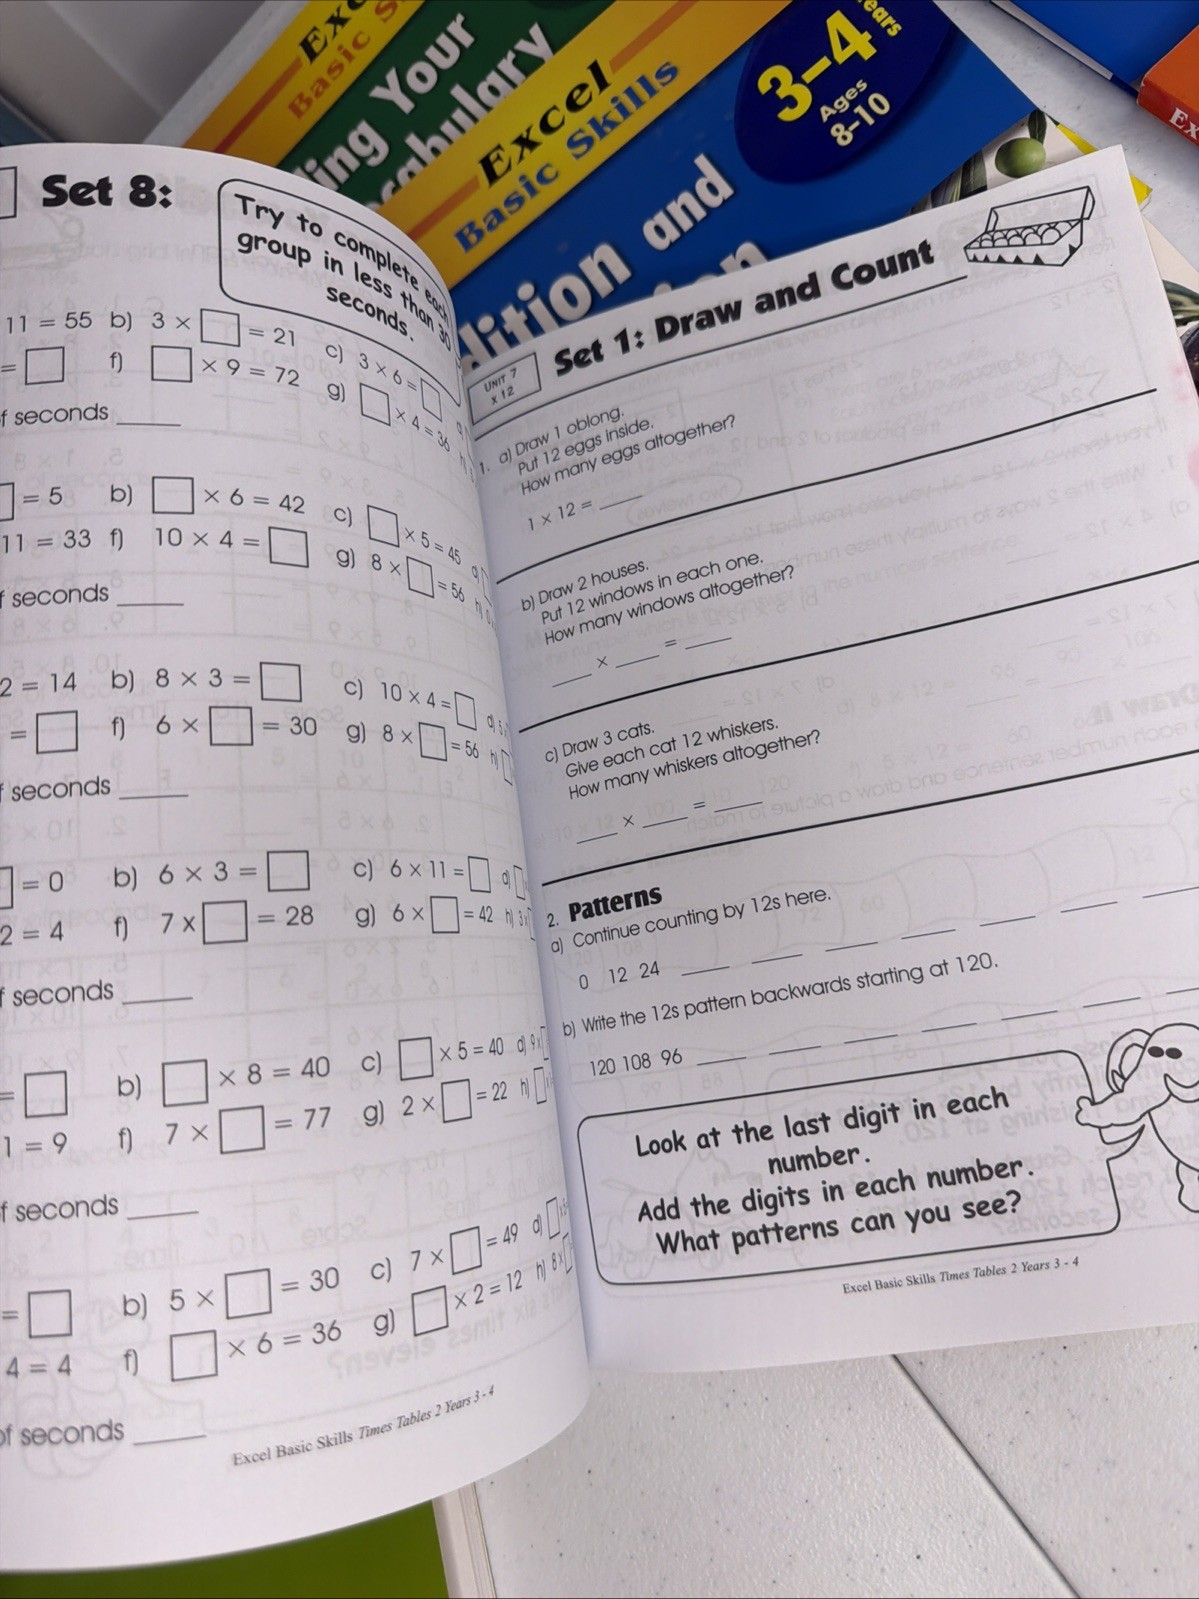 Exce
Basic S
ling Your
cabulary
Excel
Basic Skills
3-4
ears
Ages
8-10
dition and
Ex
Set 8:
Try to complete each
group in less than 30
seconds.
11 = 55 b) 3 × □ = 21 c) 3 × 6 = □
= □ f) □ × 9 = 72 g) □ × 4 = 36
f seconds ____
□ = 5 b) □ × 6 = 42 c) □ × 5 = 45
11 = 33 f) 10 × 4 = □ g) 8 × □ = 56
f seconds ____
2 = 14 b) 8 × 3 = □ c) 10 × 4 = □ d) 5
= □ f) 6 × □ = 30 g) 8 × □ = 56 h) □
f seconds ____
□ = 0 b) 6 × 3 = □ c) 6 × 11 = □ d) □
2 = 4 f) 7 × □ = 28 g) 6 × □ = 42 h) 3 ×
f seconds ____
= □ b) □ × 8 = 40 c) □ × 5 = 40 d) 9 ×
1 = 9 f) 7 × □ = 77 g) 2 × □ = 22 h) □
f seconds ____
= □ b) 5 × □ = 30 c) 7 × □ = 49 d) □
4 = 4 f) □ × 6 = 36 g) □ × 2 = 12 h) 8 ×
of seconds ____
Excel Basic Skills Times Tables 2 Years 3 - 4
UNIT 7
x 12
Set 1: Draw and Count
1. a) Draw 1 oblong.
Put 12 eggs inside.
How many eggs altogether?
1 × 12 = ____
b) Draw 2 houses.
Put 12 windows in each one.
How many windows altogether?
____ × ____ = ____
c) Draw 3 cats.
Give each cat 12 whiskers.
How many whiskers altogether?
____ × ____ = ____
2. Patterns
a) Continue counting by 12s here.
0 12 24 ____ ____ ____ ____ ____ ____ ____
b) Write the 12s pattern backwards starting at 120.
120 108 96 ____ ____ ____ ____ ____ ____ ____
Look at the last digit in each
number.
Add the digits in each number.
What patterns can you see?
Excel Basic Skills Times Tables 2 Years 3 - 4